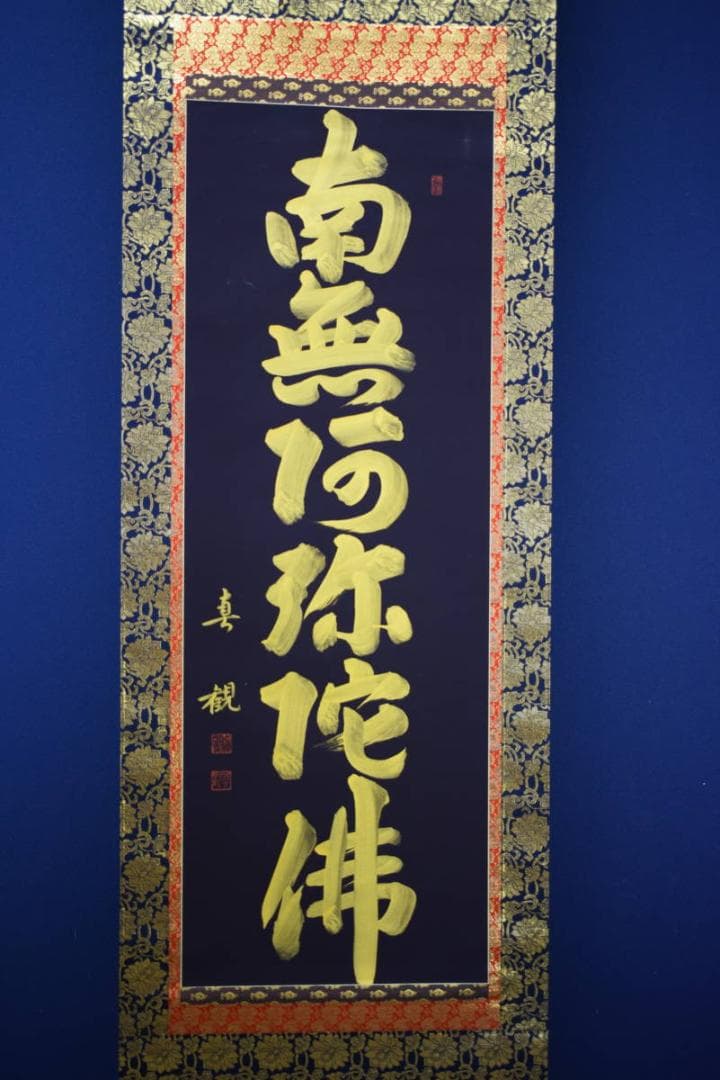 南無阿弥陀佛
真観